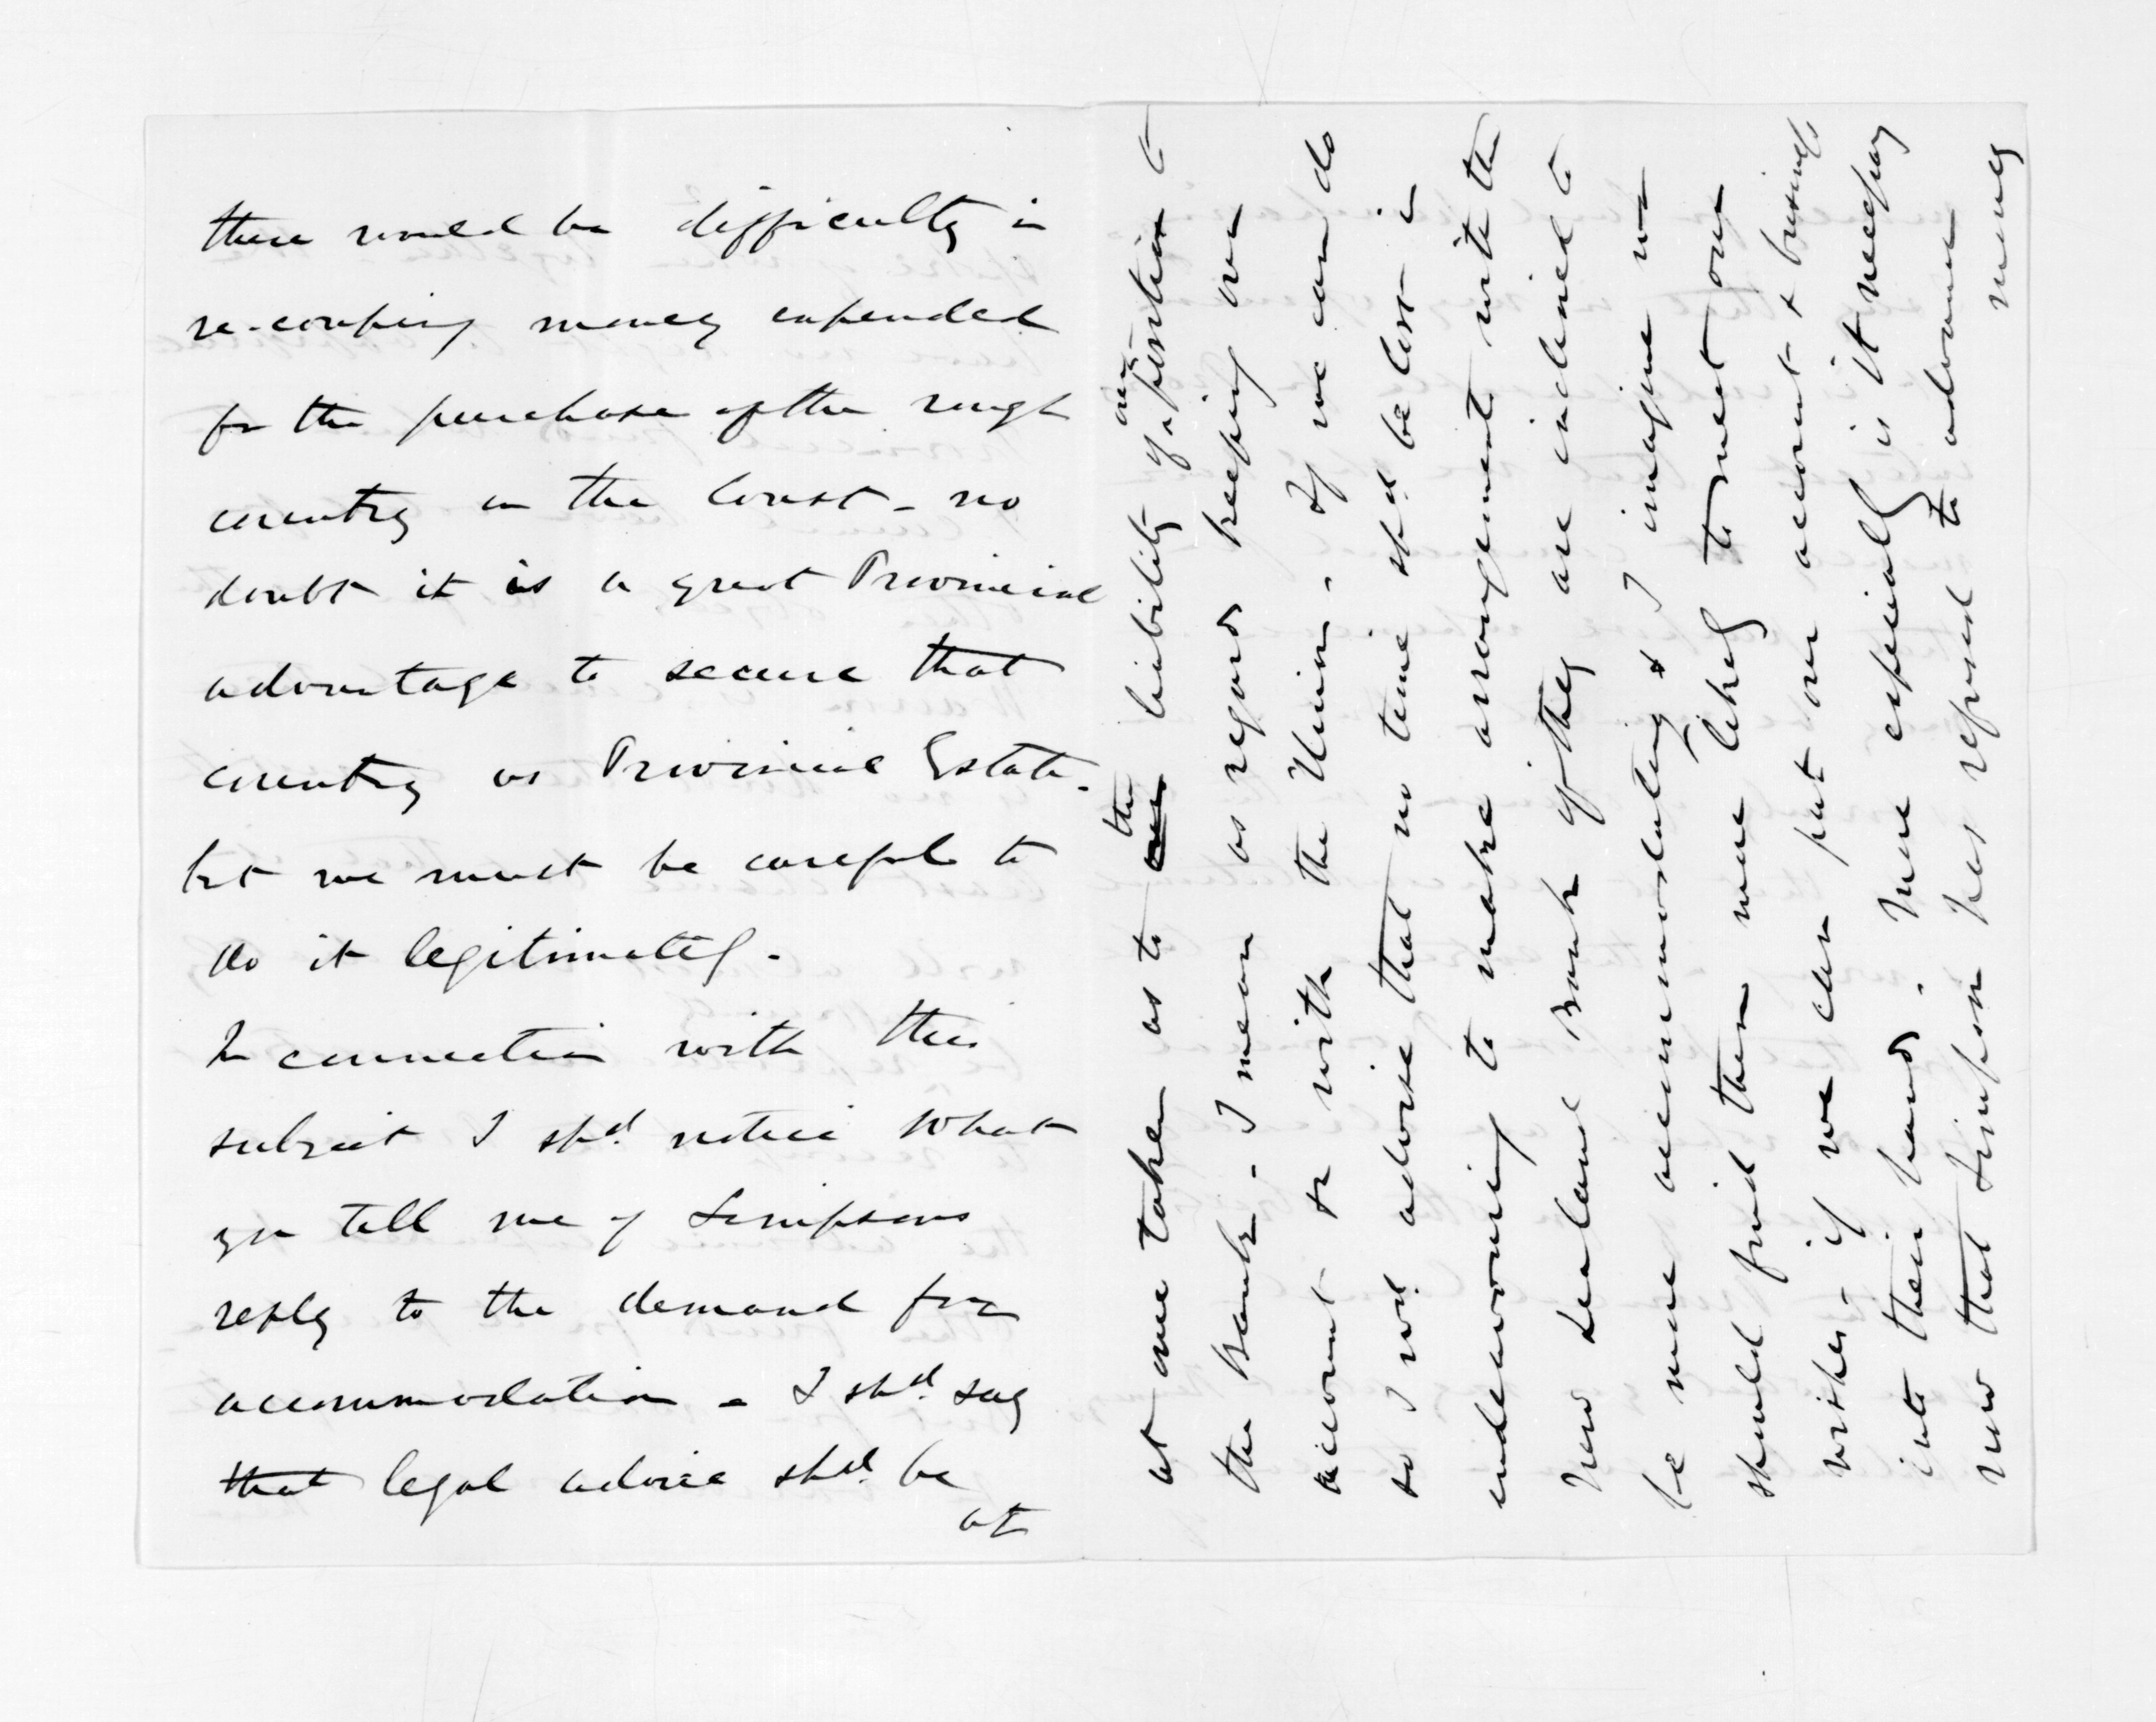 there would be difficulty in
re-couping money expended
for the purchase of the rough
country on the Coast - no
doubt it is a great Provincial
advantage to secure that
country as Provincial Estate -
but we must be careful to
do it legitimately -
In connection with this
subject I shd. notice what
you tell me of Simpsons
reply to the demand for
accommodation - I shd. say
that legal advice shd. be
at
at once taken as to our the liability of our a position to
the Bank - I mean as regards keeping our
account with the Union - If we can do
so I wd. advise that no time shd. be lost in
endeavouring to make arrangements with the
New Zealand Bank if they are inclined to
be more accommodating & I imagine we
should find them more likely to meet our
wishes - if we can put our account & business
into their hands - More especially is it necessary
now that Simpson has refused to advance
money